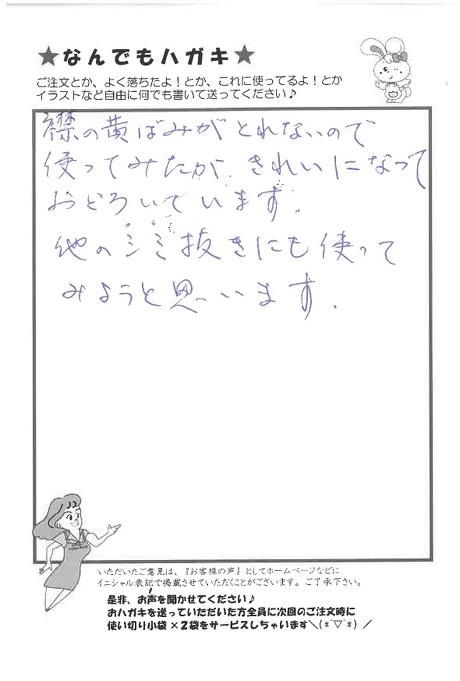 ★なんでもハガキ★
ご注文とか、よく落ちたよ！とか、これに使ってるよ！とか
イラストなど自由に何でも書いて送ってください♪
襟の黄ばみがとれないので
使ってみたが、きれいになって
おどろいています。
他のシミ抜きにも使って
みようと思います。
いただいたご意見は、『お客様の声』としてホームページなどに
イニシャル表記で掲載させていただくことがございます。ご了承下さい。
是非、お声を聞かせてください♪
おハガキを送っていただいた方全員に次回のご注文時に
使い切り小袋×2袋をサービスしちゃいます＼(*ˊ▽ˋ*)／